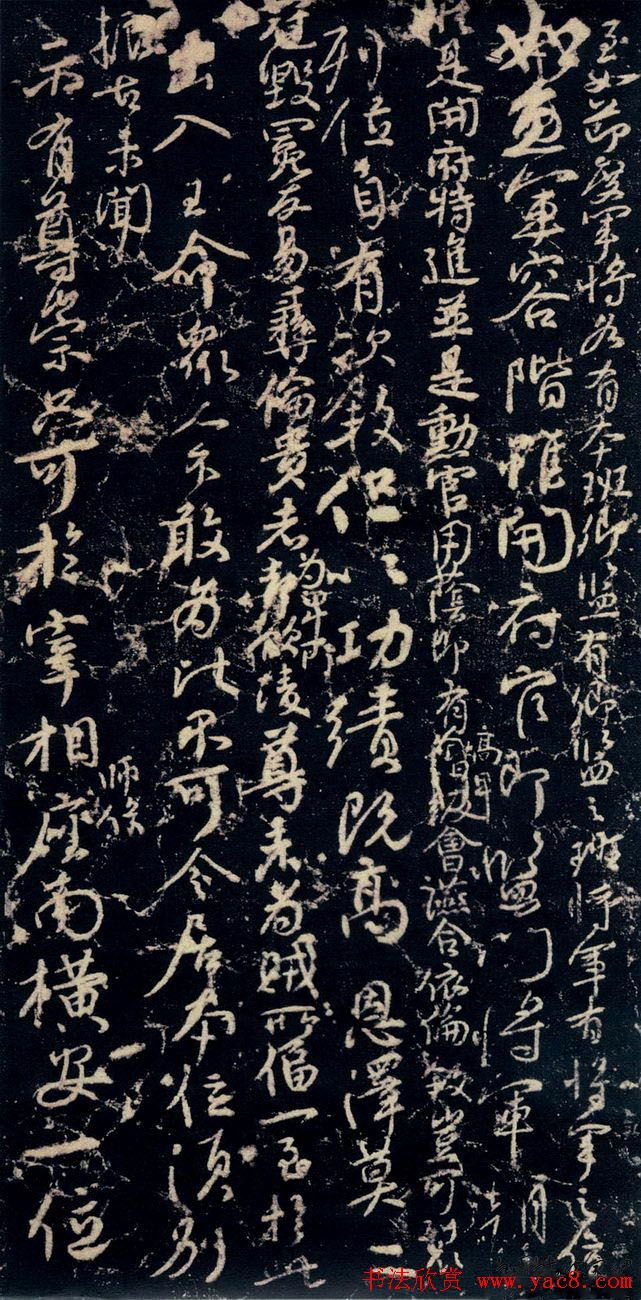 至如節度軍將各有本班卿監有卿監之班將軍有將軍之位
如魚軍容階雖開府官即監門將軍朝廷
縱是開府特進並是勳官用蔭即有高卑會讌合依倫敘豈可裂
列位自有次敘但以功績既高恩澤莫二
冠毀冕反易彝倫貴者為卑所凌尊者為賊所逼一至於此
出入王命眾人不敢為比不可令居本位須別
振古未聞
示有尊崇只可於宰相師保座南橫安一位
书法欣赏 www.yac8.com